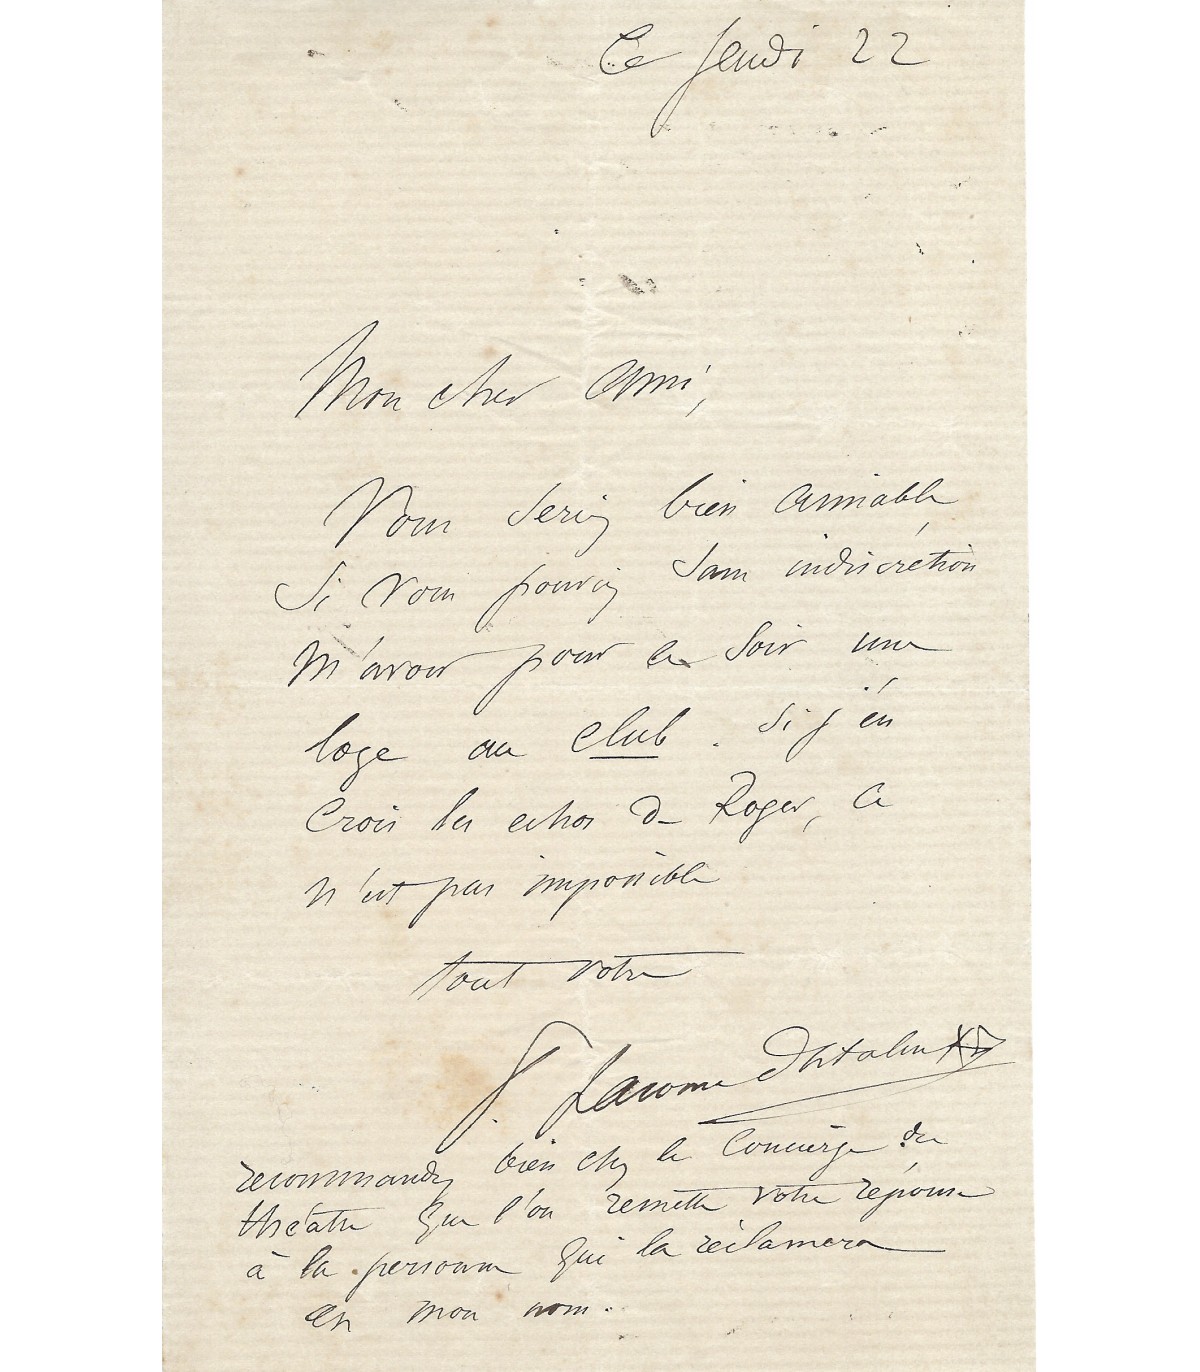 Ce Jeudi 22
Mon cher ami,
Vous seriez bien aimable
si vous pouviez sans indiscrétion
m'avoir pour ce soir une
loge au club. si j'en
crois les echos de Roger, ce
n'est pas impossible
tout votre
recommandez bien chez le Concierge du
théâtre que l'on remette votre réponse
à la personne qui la réclamera
en mon nom.